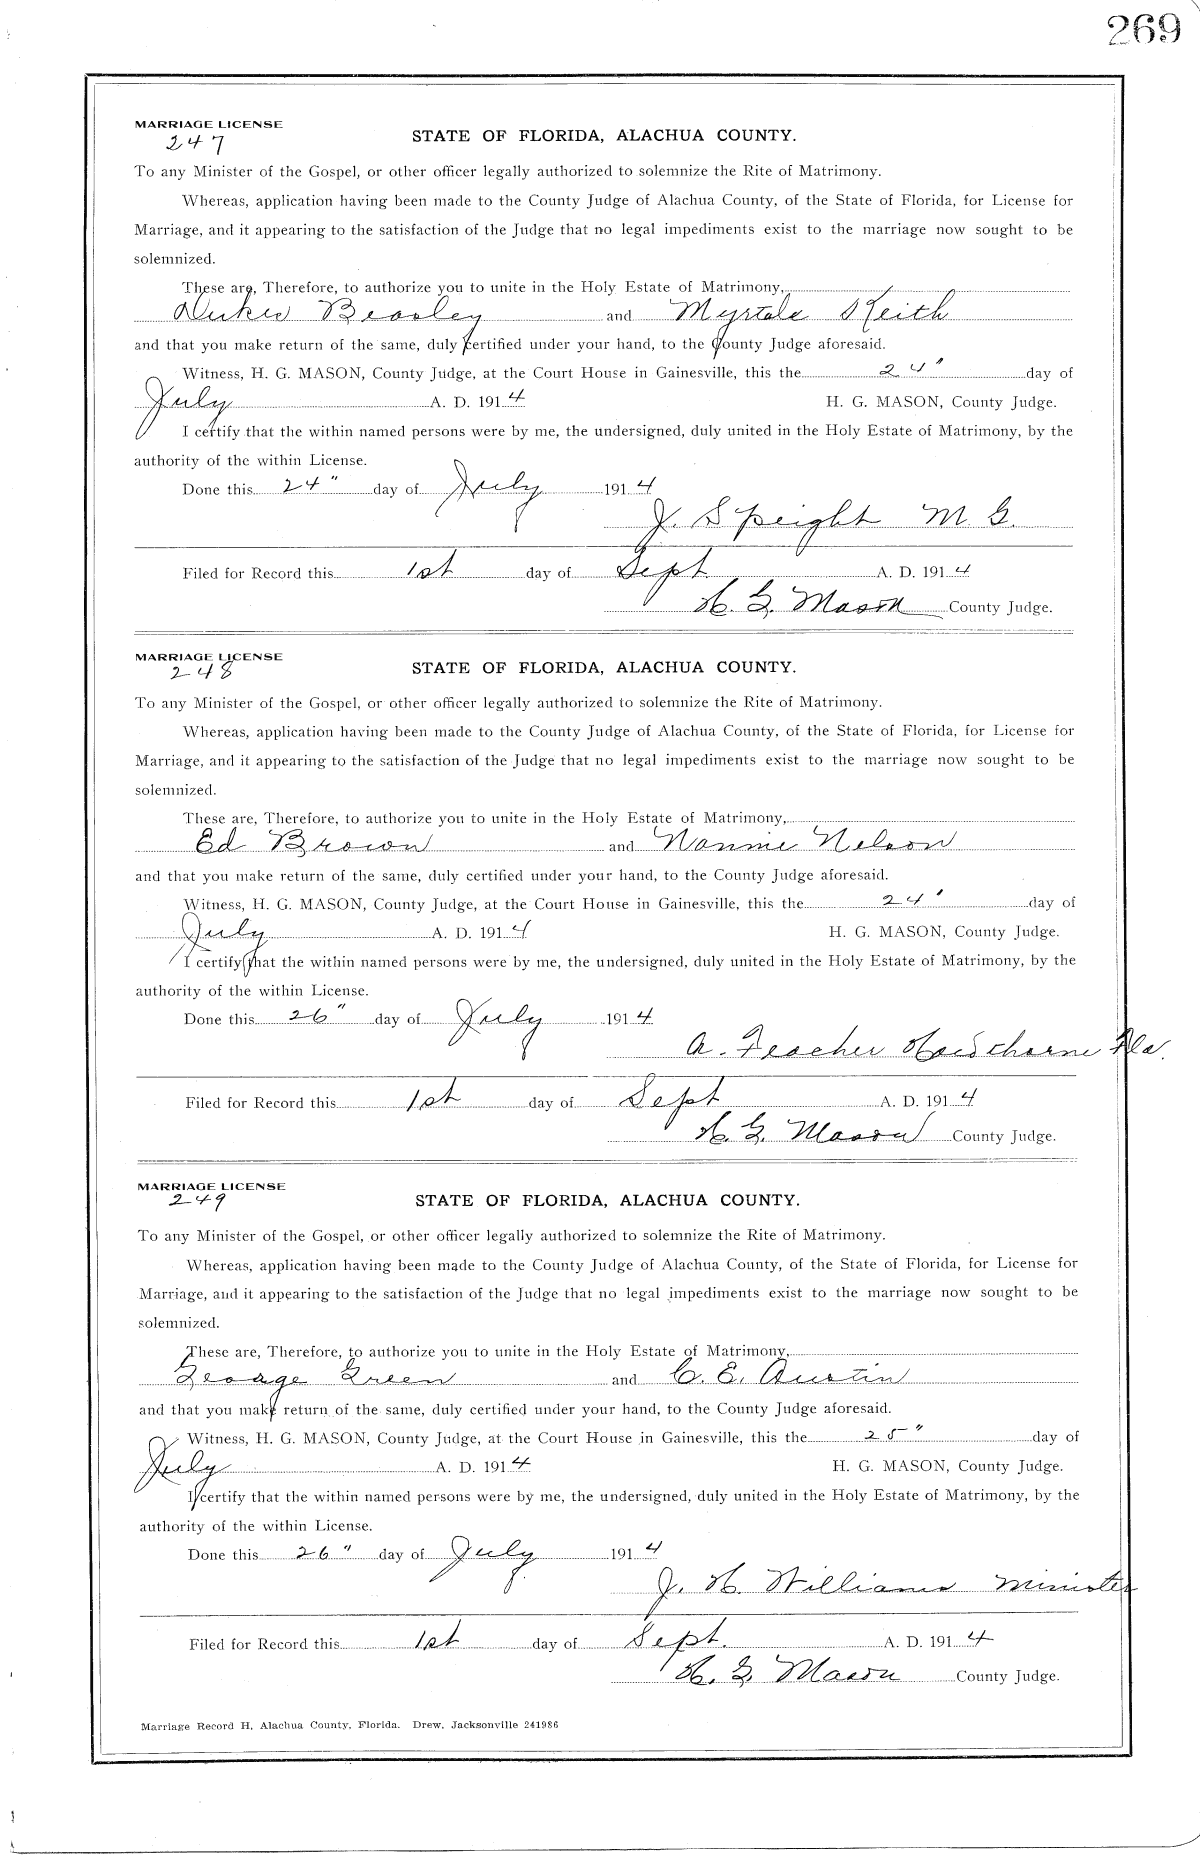 269
MARRIAGE LICENSE
247
STATE OF FLORIDA, ALACHUA COUNTY.
To any Minister of the Gospel, or other officer legally authorized to solemnize the Rite of Matrimony.
Whereas, application having been made to the County Judge of Alachua County, of the State of Florida, for License for
Marriage, and it appearing to the satisfaction of the Judge that no legal impediments exist to the marriage now sought to be
solemnized.
These are, Therefore, to authorize you to unite in the Holy Estate of Matrimony,
Beasley and Myrtale Keith
and that you make return of the same, duly certified under your hand, to the County Judge aforesaid.
Witness, H. G. MASON, County Judge, at the Court House in Gainesville, this the 24" day of
July A. D. 1914 H. G. MASON, County Judge.
I certify that the within named persons were by me, the undersigned, duly united in the Holy Estate of Matrimony, by the
authority of the within License.
Done this 24" day of July 1914
J. Speight M. G.
Filed for Record this 1st day of Sept A. D. 1914
H. G. Mason County Judge.
MARRIAGE LICENSE
248
STATE OF FLORIDA, ALACHUA COUNTY.
To any Minister of the Gospel, or other officer legally authorized to solemnize the Rite of Matrimony.
Whereas, application having been made to the County Judge of Alachua County, of the State of Florida, for License for
Marriage, and it appearing to the satisfaction of the Judge that no legal impediments exist to the marriage now sought to be
solemnized.
These are, Therefore, to authorize you to unite in the Holy Estate of Matrimony,
Ed Brown and Nannie Nelson
and that you make return of the same, duly certified under your hand, to the County Judge aforesaid.
Witness, H. G. MASON, County Judge, at the Court House in Gainesville, this the 24' day of
July A. D. 1914 H. G. MASON, County Judge.
I certify that the within named persons were by me, the undersigned, duly united in the Holy Estate of Matrimony, by the
authority of the within License.
Done this 26" day of July 1914
A. Feacher Hawthorne Fla.
Filed for Record this 1st day of Sept A. D. 1914
H. G. Mason County Judge.
MARRIAGE LICENSE
249
STATE OF FLORIDA, ALACHUA COUNTY.
To any Minister of the Gospel, or other officer legally authorized to solemnize the Rite of Matrimony.
Whereas, application having been made to the County Judge of Alachua County, of the State of Florida, for License for
Marriage, and it appearing to the satisfaction of the Judge that no legal impediments exist to the marriage now sought to be
solemnized.
These are, Therefore, to authorize you to unite in the Holy Estate of Matrimony,
George Green and C. E. Austin
and that you make return of the same, duly certified under your hand, to the County Judge aforesaid.
Witness, H. G. MASON, County Judge, at the Court House in Gainesville, this the 25" day of
July A. D. 1914 H. G. MASON, County Judge.
I certify that the within named persons were by me, the undersigned, duly united in the Holy Estate of Matrimony, by the
authority of the within License.
Done this 26" day of July 1914
J. H. Williams Minister
Filed for Record this 1st day of Sept. A. D. 1914
H. G. Mason County Judge.
Marriage Record H, Alachua County, Florida. Drew, Jacksonville 241986